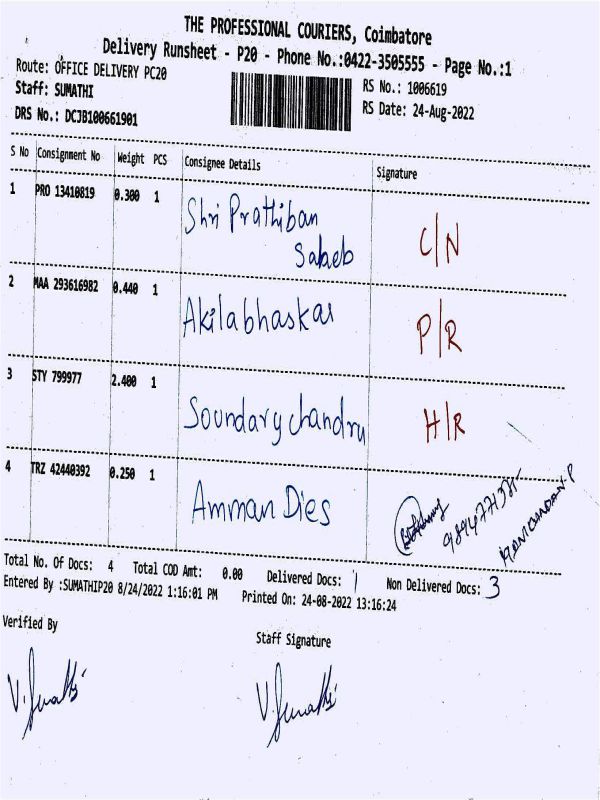 THE PROFESSIONAL COURIERS, Coimbatore
Delivery Runsheet - P20 - Phone No.:0422-3505555 - Page No.:1
Route: OFFICE DELIVERY PC20
RS No.: 1006619
Staff: SUMATHI
RS Date: 24-Aug-2022
DRS No.: DCJB100661901
S No Consignment No Weight PCS Consignee Details Signature
1 PRO 13410819 0.300 1 Shri Prathiban C/N
Sabeb
2 MAA 293616982 0.440 1 Akilabhaskar P/R
3 STY 799977 2.400 1 Soundarychandru H/R
4 TRZ 42440392 0.250 1 Amman Dies
Total No. Of Docs: 4 Total COD Amt: 0.00 Delivered Docs: 1 Non Delivered Docs: 3
Entered By :SUMATHIP20 8/24/2022 1:16:01 PM Printed On: 24-08-2022 13:16:24
Verified By Staff Signature
V. Sumathi V. Sumathi